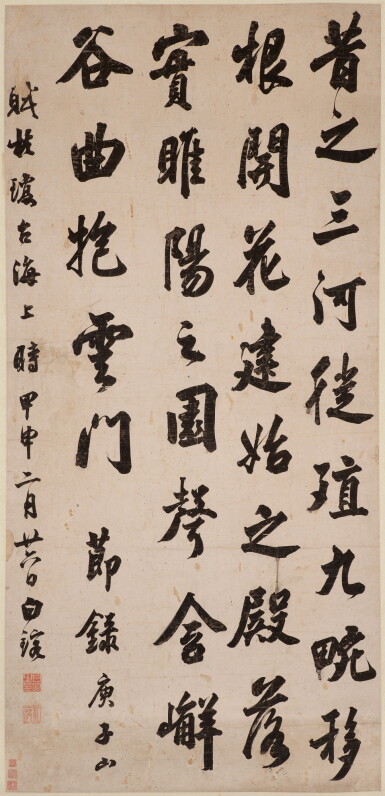 昔之三河徙殖九畹移
根開花建始之殿落
實睢陽之園聲含嶰
谷曲抱雲門 節錄庾子山
賦於瓊台海上時甲申二月廿六日白鎔